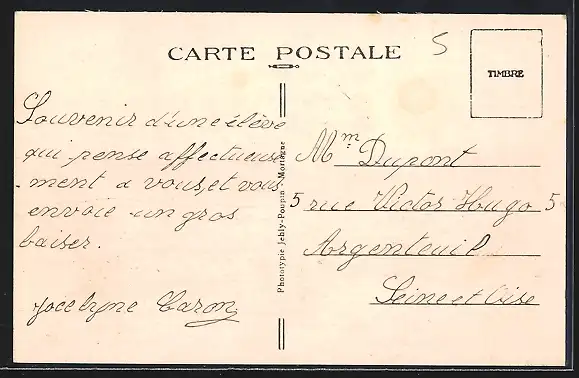 CARTE POSTALE
5
TIMBRE
Souvenir d'une élève
qui pense affectueuse
-ment a vous, et vous
envoie un gros
baiser.
Jocelyne Caron
Phototypie Jehly-Poupin - Mortagne
Mm Dupont
5 rue Victor Hugo 5
Argenteuil
Seine et Oise